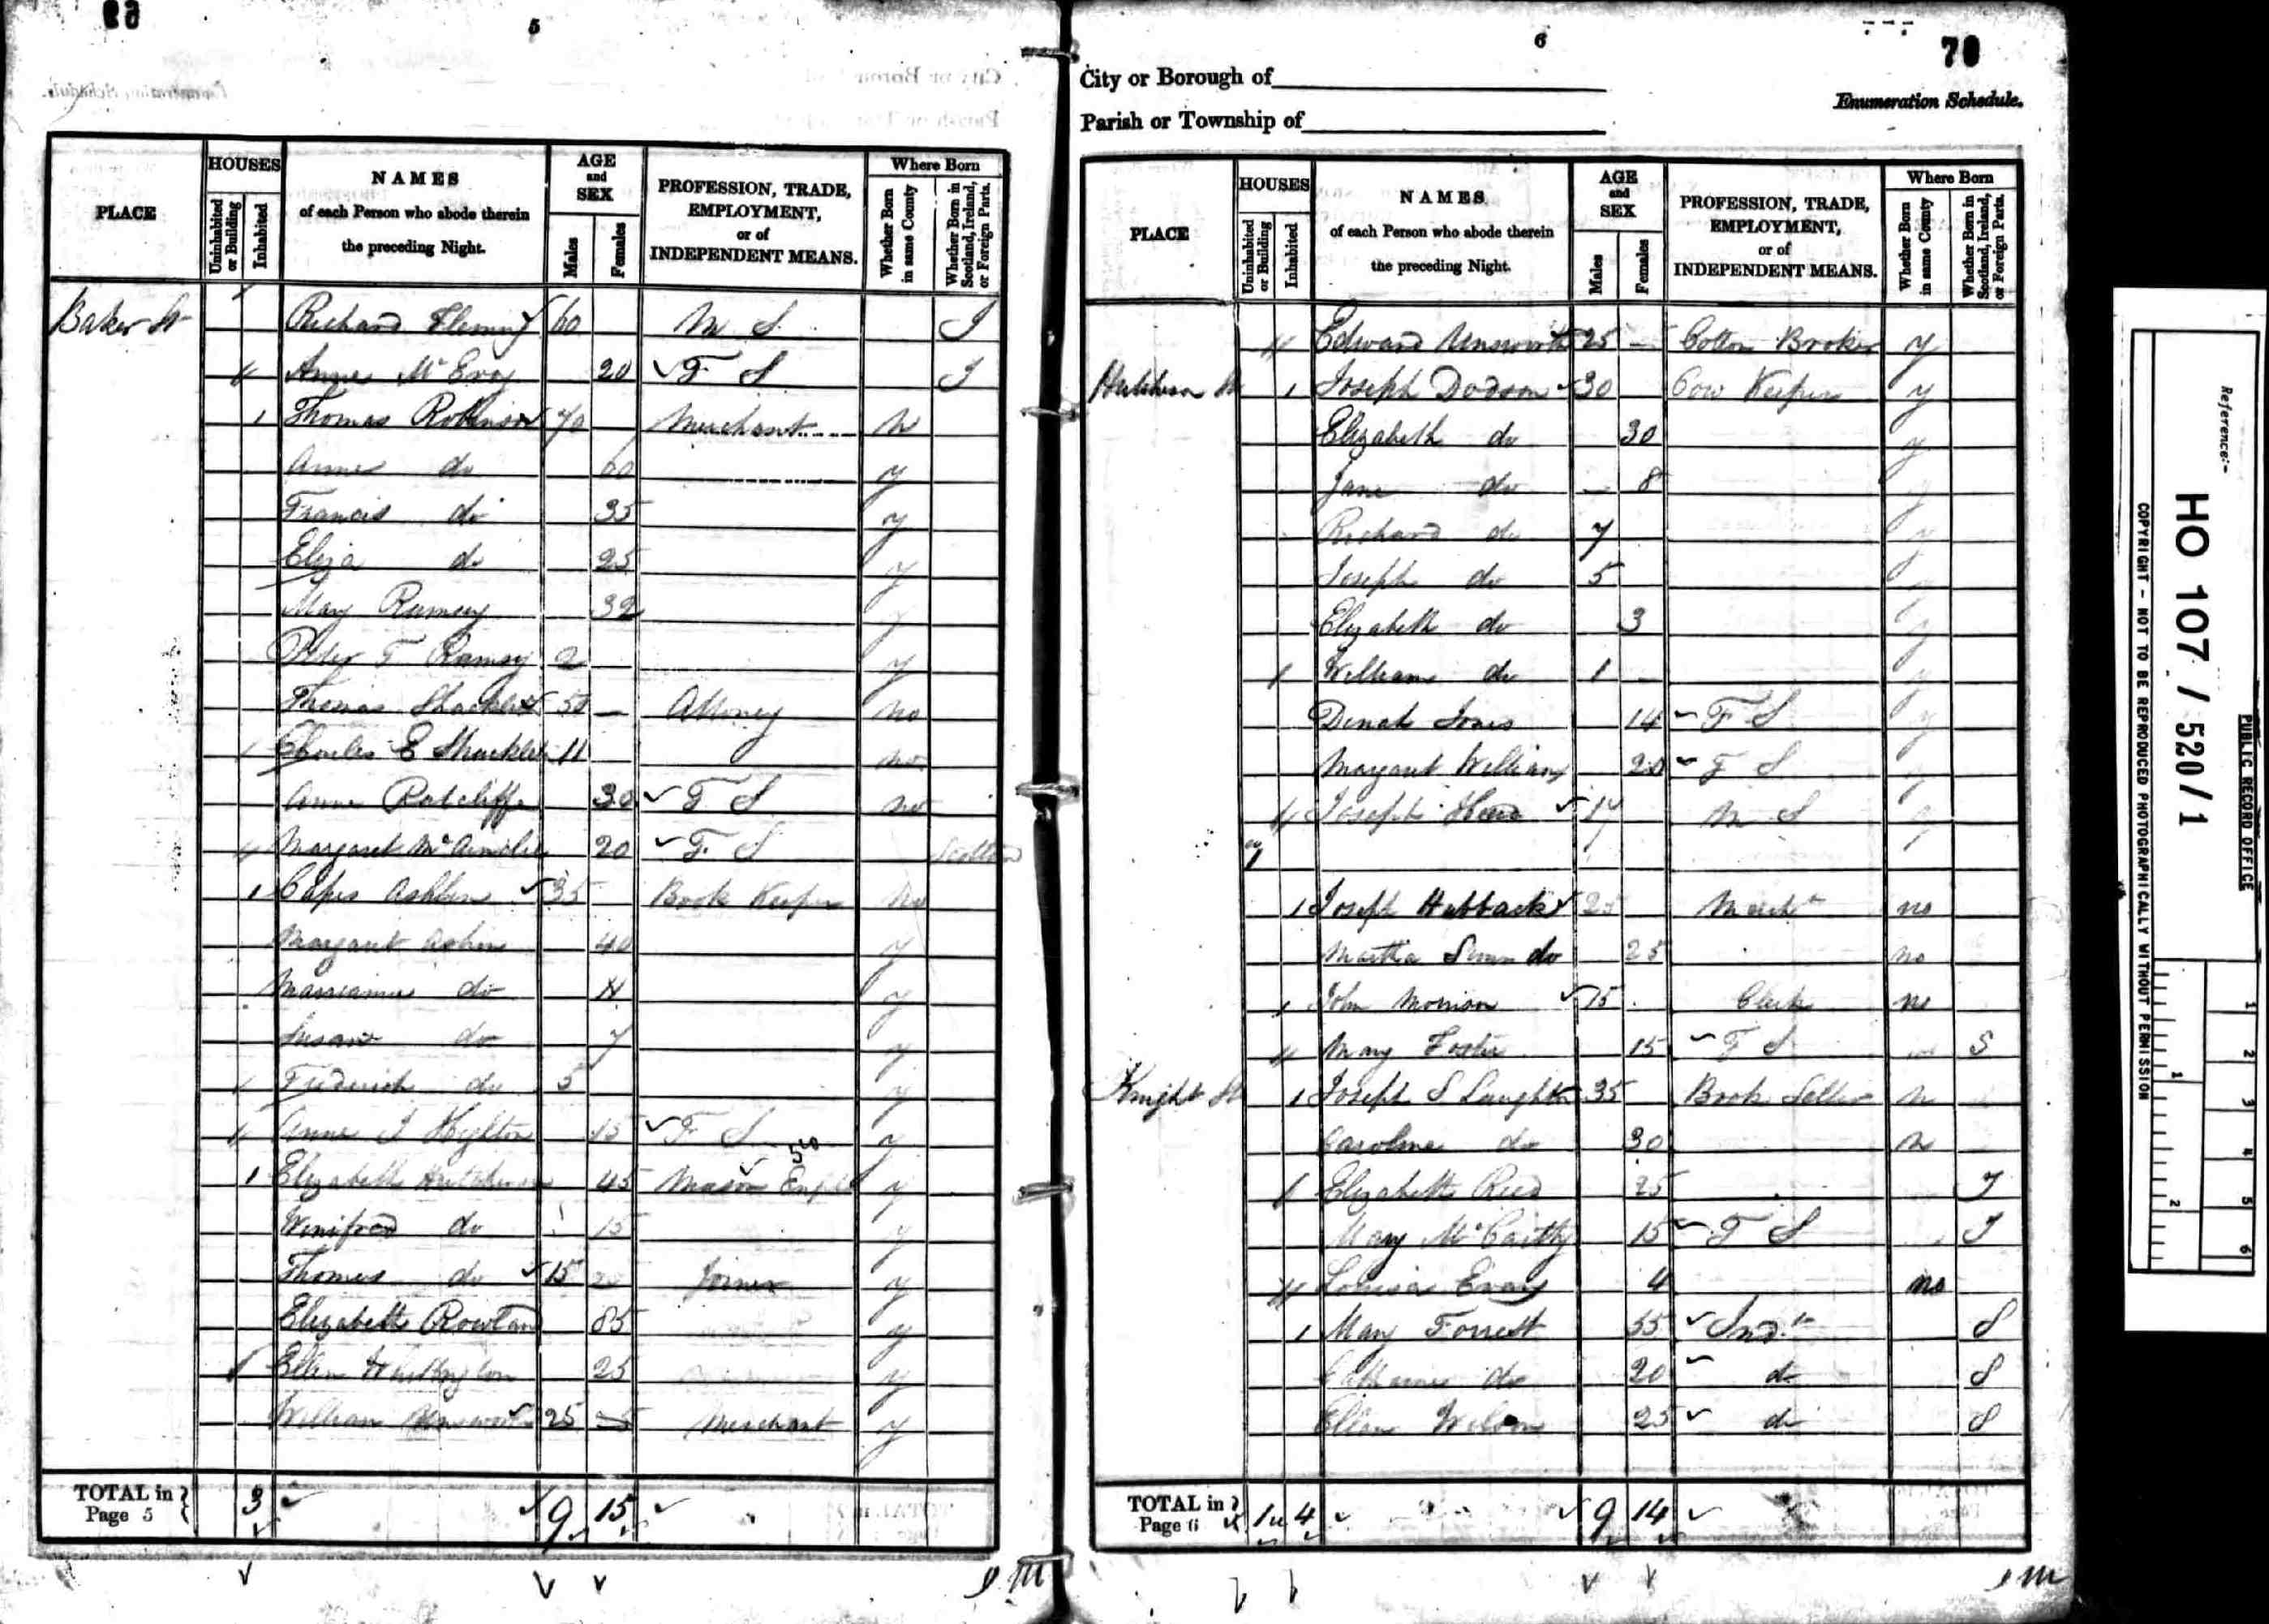 5
HOUSES
AGE and SEX
Where Born
PLACE
Uninhabited or Building
Inhabited
NAMES of each Person who abode therein the preceding Night.
Males
Females
PROFESSION, TRADE, EMPLOYMENT, or of INDEPENDENT MEANS.
Whether Born in same County
Whether Born in Scotland, Ireland, or Foreign Parts.
Baker St Richard Fleming 60 M S I
Anne Mc Evoy 20 F S I
1 Thomas Robinson 70 Merchant N
Anne do 60 y
Francis do 35 y
Eliza do 25 y
Mary Ramsey 32 y
Peter F Ramsey 2 y
Thomas 50 Attorney no
Charles E 11 no
Anne Ratcliffe 30 F S no
Margaret Mc 20 F S Scotland
1 35 Book Keeper no
Margaret 40 y
do y
Susan do 7 y
Frederick do 5 y
Anne J Highton 15 F S y
1 Elizabeth Hutchinson 45 Mason y
Winifred do 15 y
Thomas do 15 Joiner y
Elizabeth Rowland 85 y
Ellen 25 y
William Unsworth 25 Merchant y
TOTAL in Page 5 3 9 15
6
70
City or Borough of
Parish or Township of
Enumeration Schedule.
HOUSES
AGE and SEX
Where Born
PLACE
Uninhabited or Building
Inhabited
NAMES of each Person who abode therein the preceding Night.
Males
Females
PROFESSION, TRADE, EMPLOYMENT, or of INDEPENDENT MEANS.
Whether Born in same County
Whether Born in Scotland, Ireland, or Foreign Parts.
Edward Unsworth 25 Cotton Broker y
St 1 Joseph Dodson 30 Cow Keeper y
Elizabeth do 30 y
Jane do 8 y
Richard do 7 y
Joseph do 5 y
Elizabeth do 3 y
William do 1 y
Dinah Jones 14 F S y
Margaret Williams 20 F S y
Joseph M S y
1
1 Joseph Hubback 25 Merch no
Martha do 25 no
John Morrison 15 Clerk no
Mary Foster 15 F S S
Knight St 1 Joseph S 35 Book Seller N
Caroline do 30 N
Elizabeth Reed 25 I
Mary McCarthy 15 F S I
Louisa Evans 4 no
1 Mary Forrest 55 Ind S
Catharine do 20 do S
Ellen Wilson 25 do S
TOTAL in Page 6 1u 4 9 14
Reference:-
HO 107 / 520/1
PUBLIC RECORD OFFICE
COPYRIGHT - NOT TO BE REPRODUCED PHOTOGRAPHICALLY WITHOUT PERMISSION
1 2 3 4 5 6
1 2